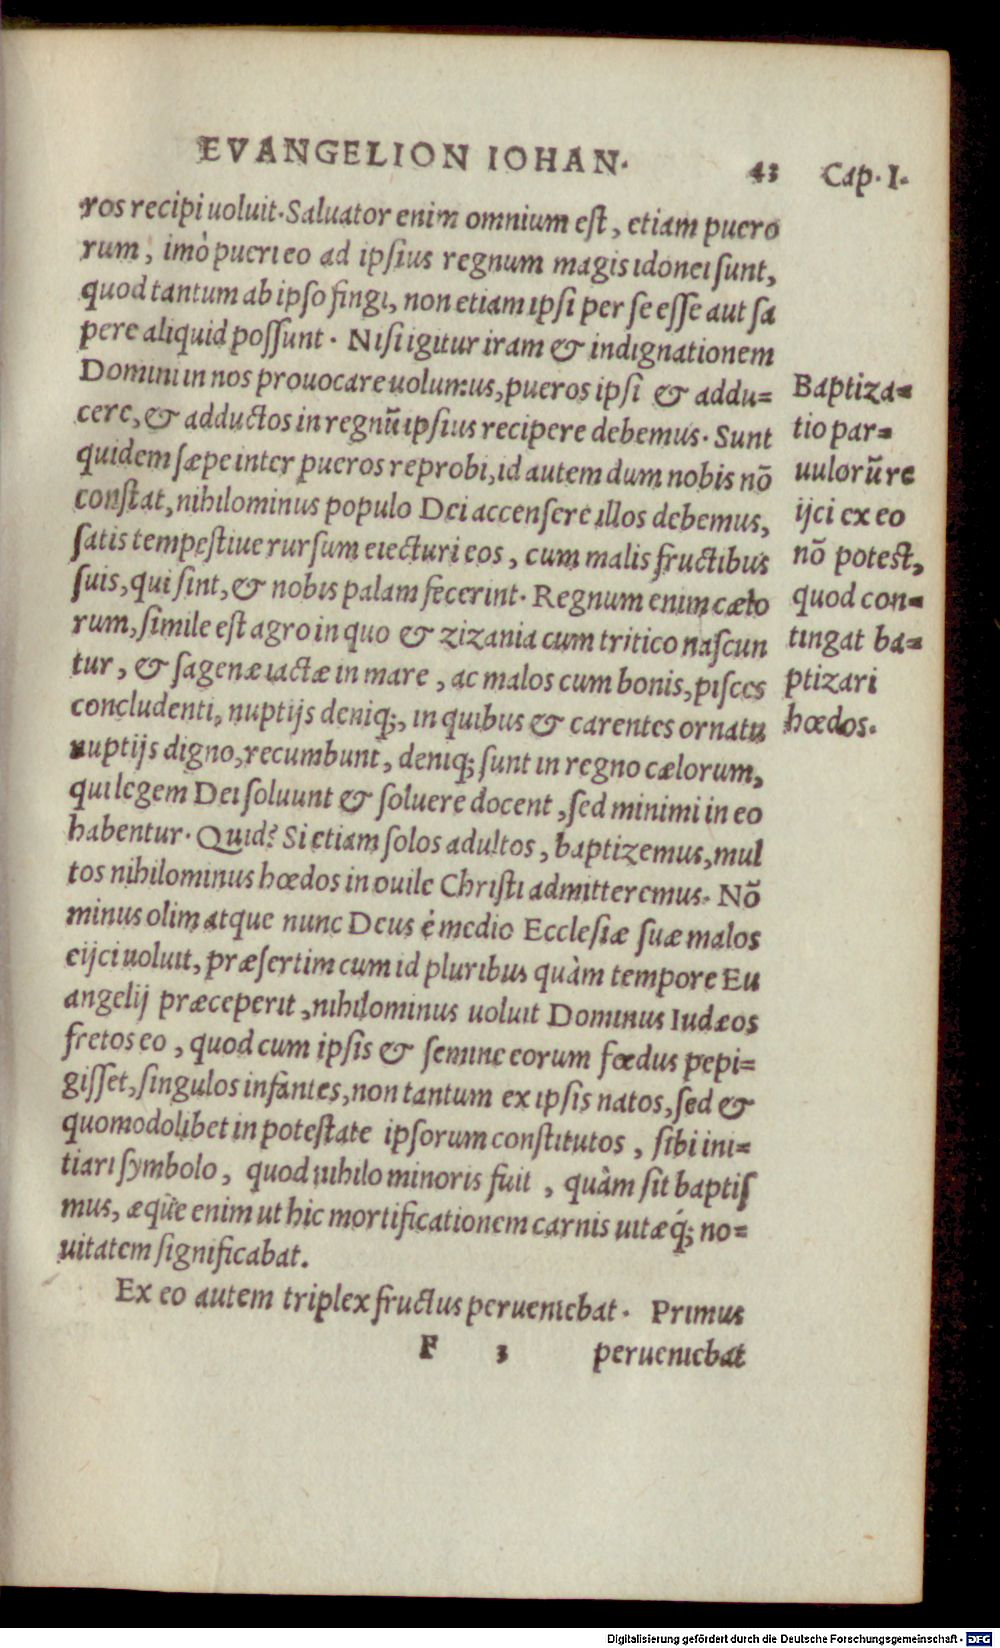 EVANGELION IOHAN. 43 Cap. I.
ros recipi uoluit. Saluator enim omnium est, etiam puero
rum, imò pueri eo ad ipsius regnum magis idonei sunt,
quod tantum ab ipso fingi, non etiam ipsi per se esse aut sa
pere aliquid possunt. Nisi igitur iram & indignationem
Domini in nos prouocare uolumus, pueros ipsi & addu=
cere, & adductos in regnũ ipsius recipere debemus. Sunt
quidem sæpe inter pueros reprobi, id autem dum nobis nõ
constat, nihilominus populo Dei accensere illos debemus,
satis tempestiue rursum eiecturi eos, cum malis fructibus
suis, qui sint, & nobis palam fecerint. Regnum enim cælo
rum, simile est agro in quo & zizania cum tritico nascun
tur, & sagenæ iactæ in mare, ac malos cum bonis, pisces
concludenti, nuptijs deniq;, in quibus & carentes ornatu
nuptijs digno, recumbunt, deniq; sunt in regno cælorum,
qui legem Dei soluunt & soluere docent, sed minimi in eo
habentur. Quid? Si etiam solos adultos, baptizemus, mul
tos nihilominus hœdos in ouile Christi admitteremus. Nõ
minus olim atque nunc Deus è medio Ecclesiæ suæ malos
eijci uoluit, præsertim cum id pluribus quàm tempore Eu
angelij præceperit, nihilominus uoluit Dominus Iudæos
fretos eo, quod cum ipsis & semine eorum fœdus pepi=
gisset, singulos infantes, non tantum ex ipsis natos, sed &
quomodolibet in potestate ipsorum constitutos, sibi ini=
tiari symbolo, quod nihilo minoris fuit, quàm sit baptis
mus, æquè enim ut hic mortificationem carnis uitæq́; no=
uitatem significabat.
Ex eo autem triplex fructus perueniebat. Primus
F 3 perueniebat
Baptiza=
tio par=
uulorũ re
ijci ex eo
nõ potest,
quod con=
tingat ba=
ptizari
hœdos.
Digitalisierung gefördert durch die Deutsche Forschungsgemeinschaft - DFG